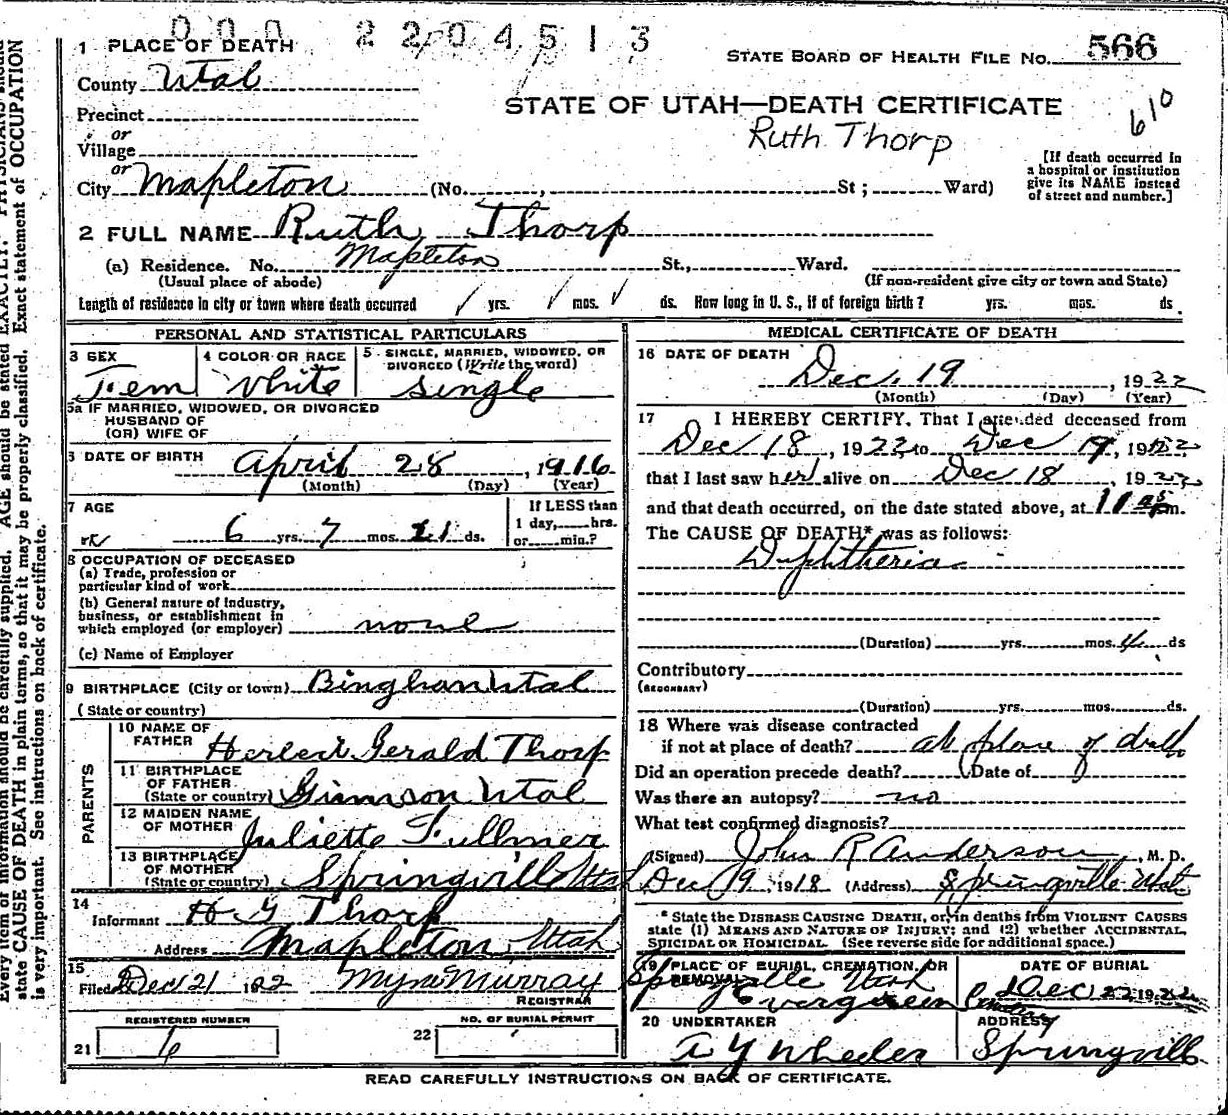 0 0 0 2 2 0 4 5 1 3
1 PLACE OF DEATH
STATE BOARD OF HEALTH FILE NO. 566
County Utah
STATE OF UTAH—DEATH CERTIFICATE
610
Precinct
Ruth Thorp
or
Village
or
City Mapleton (No. , St ; Ward)
[If death occurred in
a hospital or institution
give its NAME instead
of street and number.]
2 FULL NAME Ruth Thorp
(a) Residence. No. Mapleton St., Ward.
(Usual place of abode) (If non-resident give city or town and State)
Length of residence in city or town where death occurred yrs. mos. ds. How long in U. S., if of foreign birth? yrs. mos. ds.
PERSONAL AND STATISTICAL PARTICULARS
3 SEX
Fem
4 COLOR OR RACE
White
5 SINGLE, MARRIED, WIDOWED, OR
DIVORCED (Write the word)
Single
5a IF MARRIED, WIDOWED, OR DIVORCED
HUSBAND OF
(OR) WIFE OF
6 DATE OF BIRTH April 28, 1916
(Month) (Day) (Year)
7 AGE
6 yrs. 7 mos. 21 ds.
If LESS than
1 day, hrs.
or min.?
8 OCCUPATION OF DECEASED
(a) Trade, profession or
particular kind of work
(b) General nature of Industry,
business, or establishment in
which employed (or employer) none
(c) Name of Employer
9 BIRTHPLACE (City or town) Bingham Utah
(State or country)
PARENTS
10 NAME OF
FATHER Herbert Gerald Thorp
11 BIRTHPLACE
OF FATHER
(State or country) Utah
12 MAIDEN NAME
OF MOTHER Juliette Fullmer
13 BIRTHPLACE
OF MOTHER
(State or country) Springville Utah
14
Informant H G Thorp
Address Mapleton, Utah
15
Filed Dec 21 1922 Myra Murray
REGISTRAR
REGISTERED NUMBER
21 6
NO. OF BURIAL PERMIT
22
MEDICAL CERTIFICATE OF DEATH
16 DATE OF DEATH
Dec. 19, 1922
(Month) (Day) (Year)
17 I HEREBY CERTIFY, That I attended deceased from
Dec 18, 1922 to Dec 19, 1922
that I last saw her alive on Dec 18, 1922
and that death occurred, on the date stated above, at 11 m.
The CAUSE OF DEATH* was as follows:
Diphtheria
(Duration) yrs. mos. 4 ds
Contributory
(SECONDARY)
(Duration) yrs. mos. ds.
18 Where was disease contracted
if not at place of death? at place of death
Did an operation precede death? Date of
Was there an autopsy? no
What test confirmed diagnosis?
(Signed) John R Anderson, M. D.
Dec 19, 1918 (Address) Springville Utah
* State the DISEASE CAUSING DEATH, or, in deaths from VIOLENT CAUSES
state (1) MEANS AND NATURE OF INJURY; and (2) whether ACCIDENTAL,
SUICIDAL OR HOMICIDAL. (See reverse side for additional space.)
19 PLACE OF BURIAL, CREMATION, OR
REMOVAL
Springville Utah
Evergreen Cemetery
DATE OF BURIAL
Dec 22 1922
20 UNDERTAKER
A Y Wheeler
ADDRESS
Springville
READ CAREFULLY INSTRUCTIONS ON BACK OF CERTIFICATE.
Every item of information should be carefully supplied. AGE should be stated EXACTLY. PHYSICIANS should
state CAUSE OF DEATH in plain terms, so that it may be properly classified. Exact statement of OCCUPATION
is very important. See instructions on back of certificate.